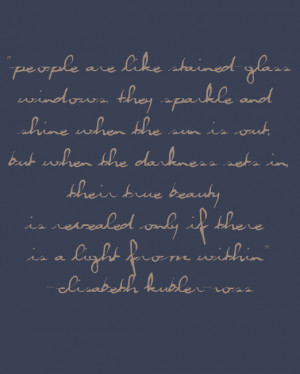 "people are like stained-glass
windows they sparkle and
shine when the sun is out,
but when the darkness sets in,
their true beauty
is revealed only if there
is a light from within"
-elisabeth kubler-ross